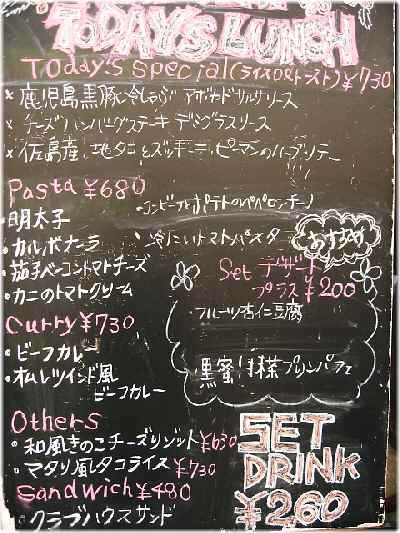 TODAY'S LUNCH
Today's special (ライスorトースト) ¥730
× 鹿児島黒豚冷しゃぶ アボカドサルサソース
× チーズハンバーグステーキ デミグラスソース
× 佐島産 地タコとズッキーニ ピーマンの
Pasta ¥680
・明太子
・カルボナーラ
・茄子ベーコントマトチーズ
・カニのトマトクリーム
・コンビーフとポテトのペペロンチーノ
・冷たいトマトパスタ
おすすめ
Set デザート
プラス ¥200
・フルーツ杏仁豆腐
・黒蜜抹茶プリンパフェ
Curry ¥730
・ビーフカレー
・オムレツインド風
ビーフカレー
Others
・和風きのこチーズリゾット ¥630
・マタリ風タコライス ¥730
Sandwich ¥480
・クラブハウスサンド
SET
DRINK
¥260